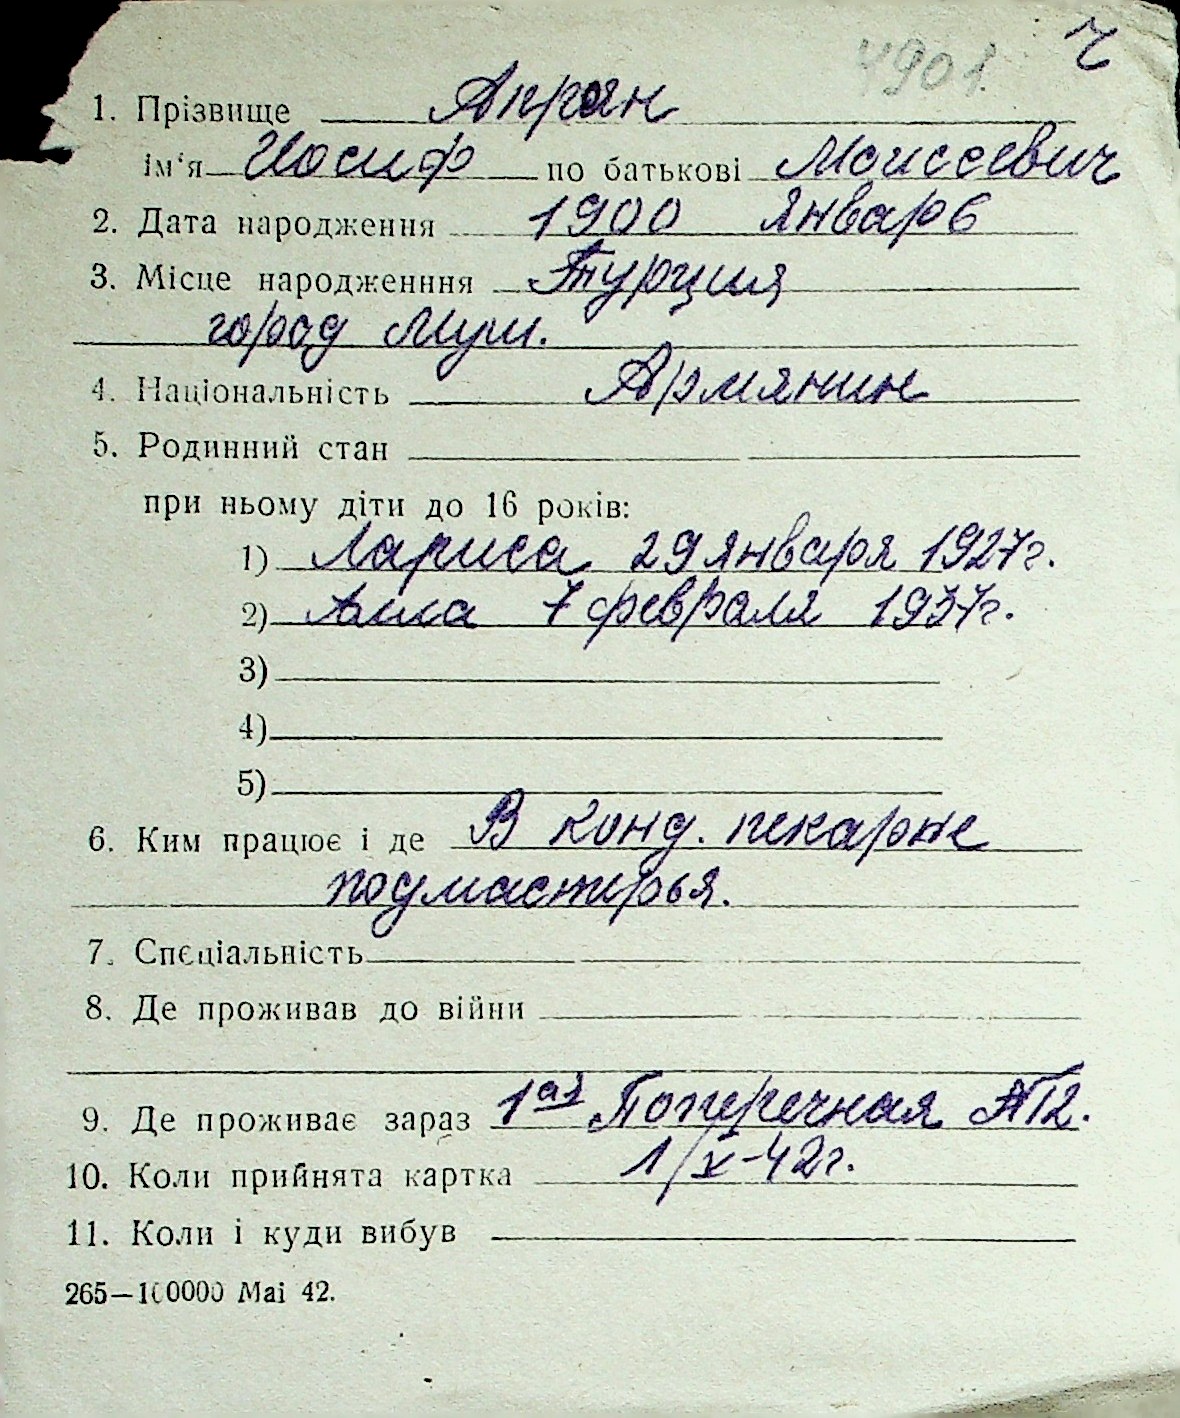 4901. Ч
1. Прізвище Апрян
ім'я Иосиф по батькові Моисеевич
2. Дата народження 1900 январь
3. Місце народженння Турция
город Муш.
4. Національність Армянин
5. Родинний стан
при ньому діти до 16 років:
1) Лариса 29 января 1927г.
2) Алла 7 февраля 1937г.
3)
4)
5)
6. Ким працює і де В конд. пекарне
подмастирья.
7. Спєціальність
8. Де проживав до війни
9. Де проживає зараз 1ая Поперечная №12.
10. Коли прийнята картка 1/X-42г.
11. Коли і куди вибув
265—100000 Mai 42.